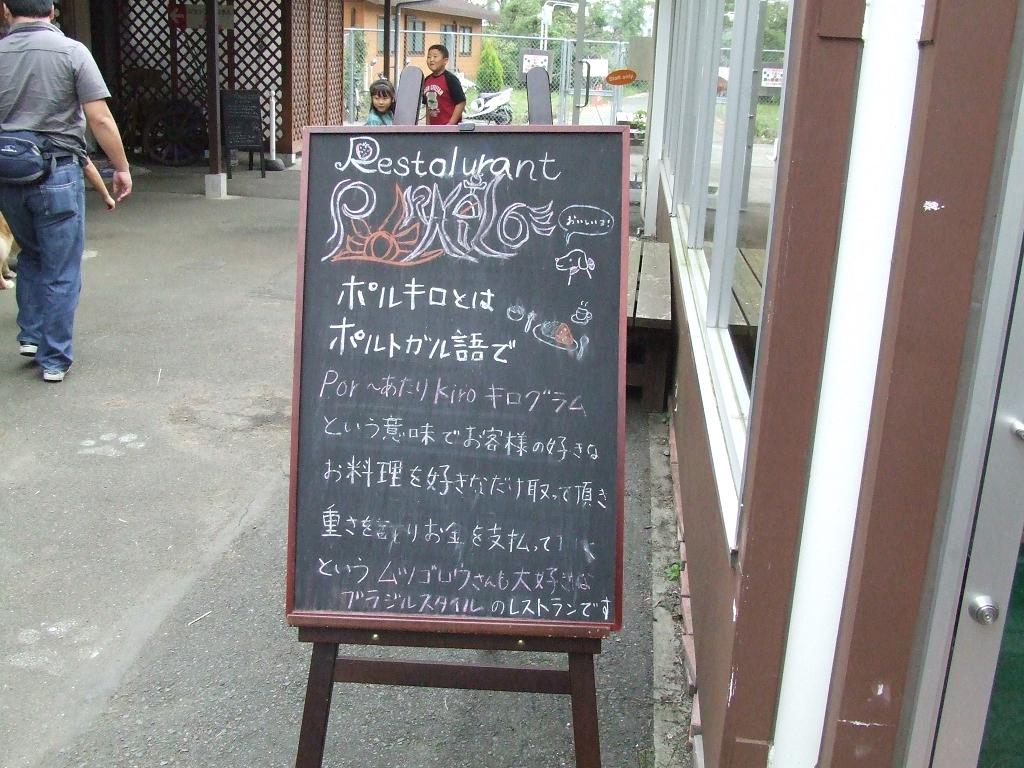 Restalurant
PORKILO
おいしいよ!
ポルキロとは
ポルトガル語で
Por 〜あたり Kiro キログラム
という意味でお客様の好きな
お料理を好きなだけ取って頂き
重さを計りお金を支払って
という ムツゴロウさんも大好きな
ブラジルスタイル のレストランです
Staff only